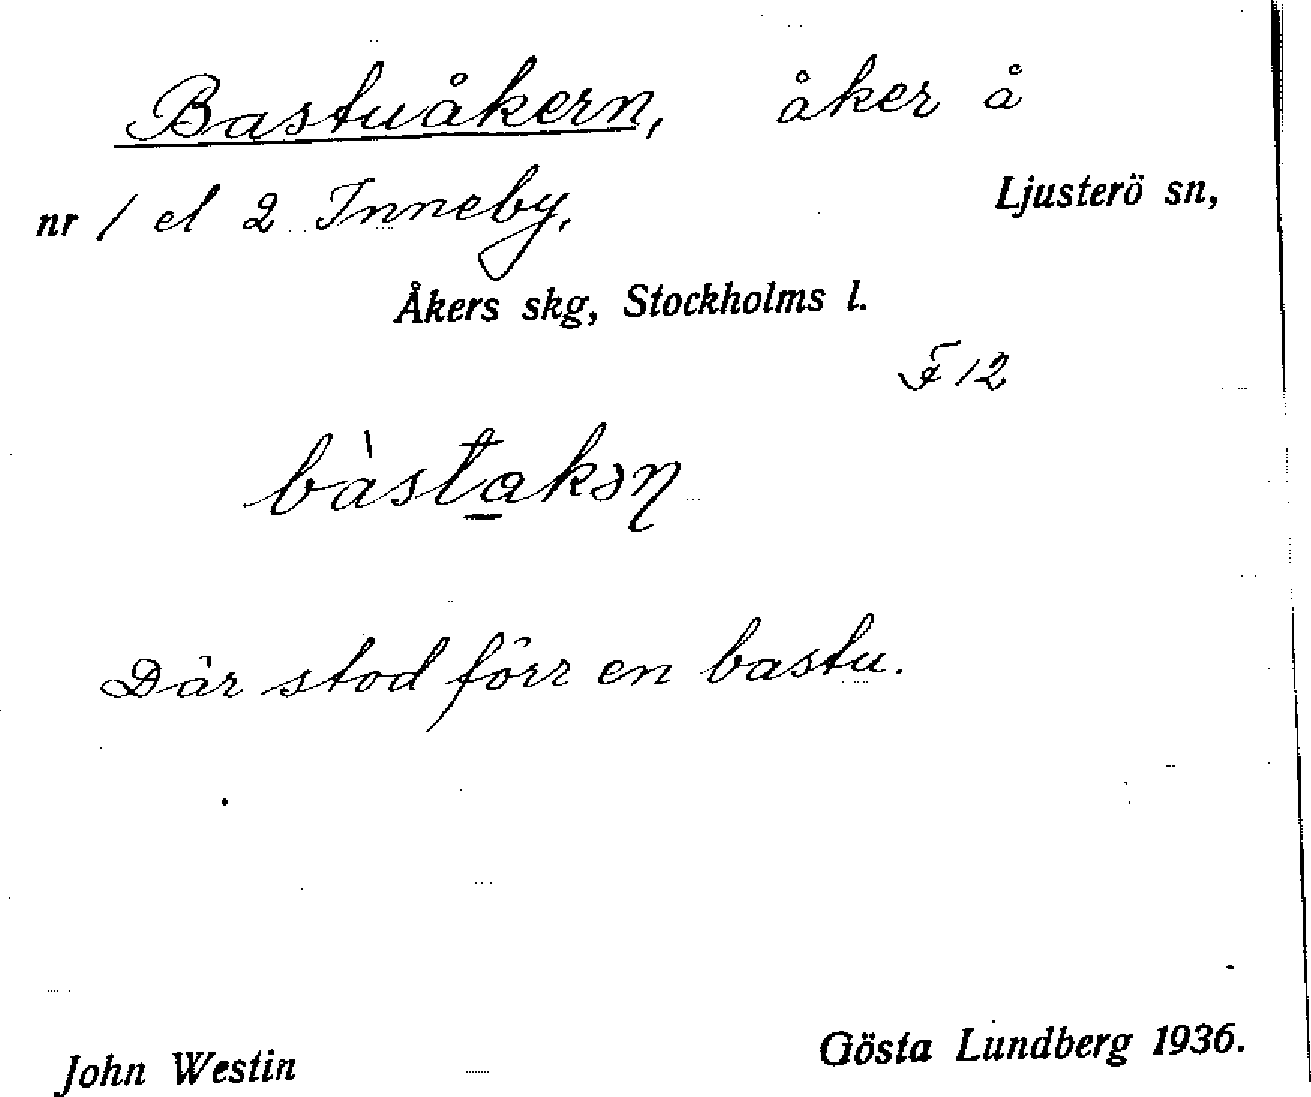 Bastuåkern, åker å
nr 1 el 2 Inneby, Ljusterö sn,
Åkers skg, Stockholms l.
F 12
bàstakən
Där stod förr en bastu.
John Westin Gösta Lundberg 1936.